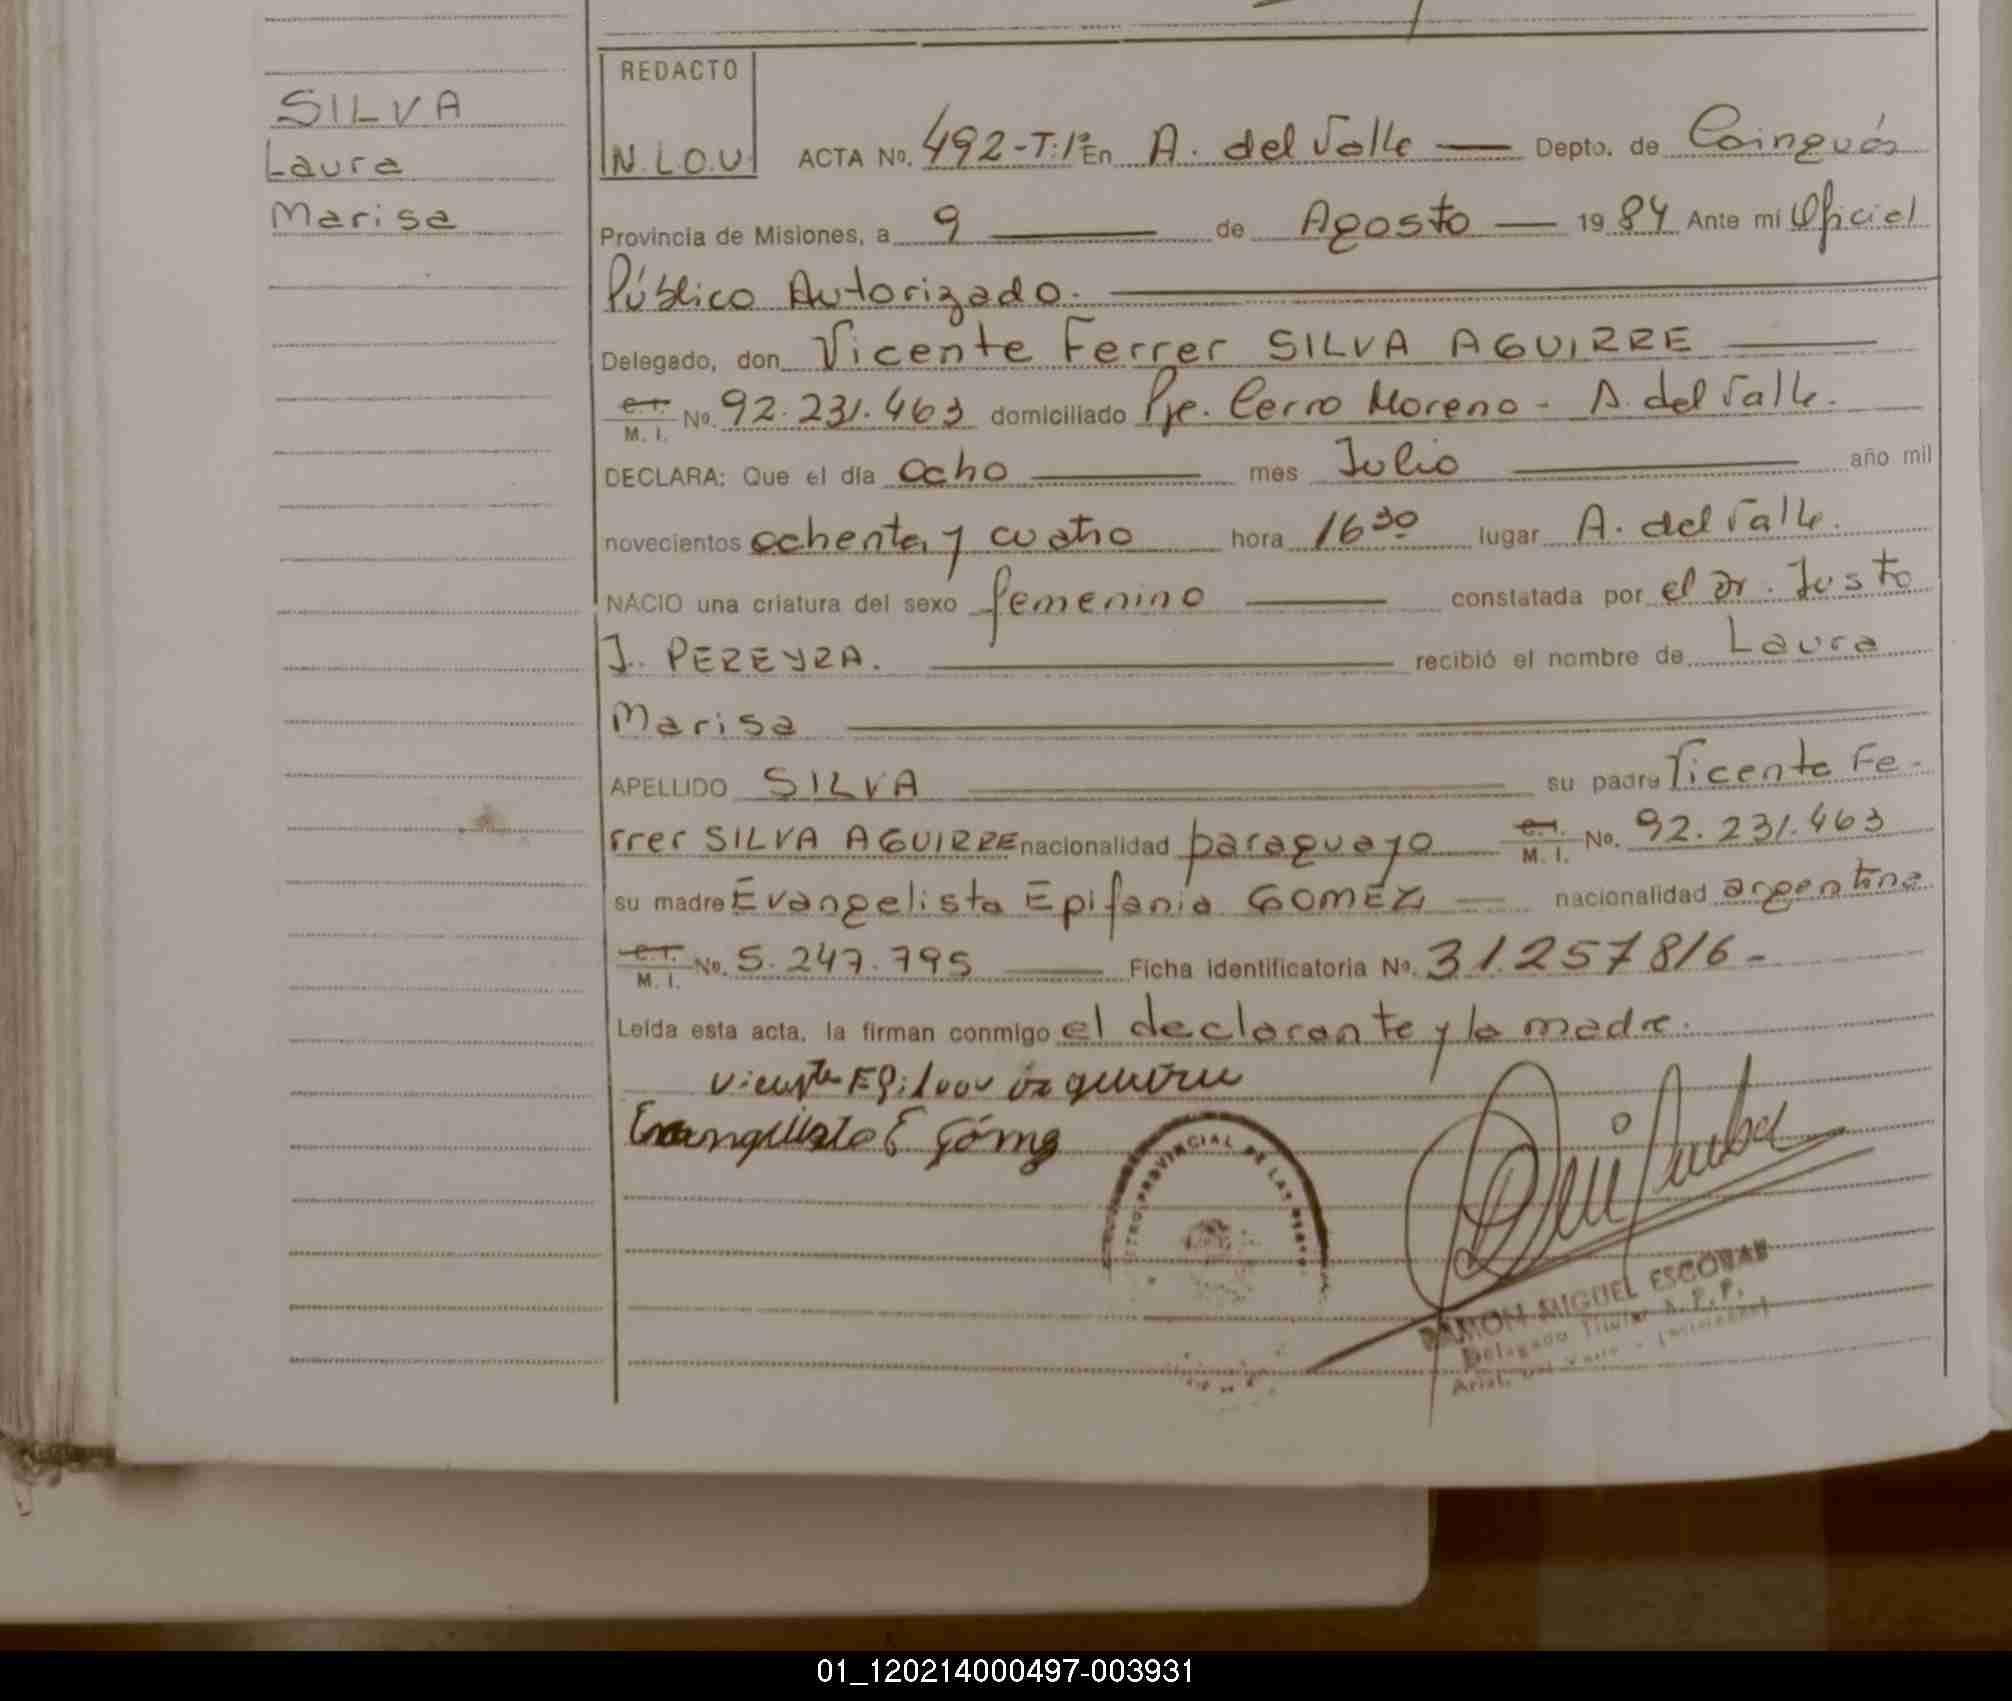 SILVA
Laura
Marisa
REDACTO
N.L.O.U.
ACTA No. 492-T:1º En A. del Valle — Depto. de Cainguás
Provincia de Misiones, a 9 — de Agosto — 1984 Ante mí Oficial
Público Autorizado.
Delegado, don Vicente Ferrer SILVA AGUIRRE
C.I. M. I. No. 92.231.463 domiciliado Pje. Cerro Moreno - A. del Valle.
DECLARA: Que el día ocho — mes Julio — año mil
novecientos ochenta y cuatro hora 16 30 lugar A. del Valle.
NACIO una criatura del sexo femenino — constatada por el Dr. Justo
J. PEREYRA. — recibió el nombre de Laura
Marisa
APELLIDO SILVA — su padre Vicente Fe-
rrer SILVA AGUIRRE nacionalidad paraguayo C.I. M. I. No. 92.231.463
su madre Evangelista Epifania GOMEZ — nacionalidad argentina
C.I. M. I. No. 5.247.795 — Ficha identificatoria No. 31.257816-
Leída esta acta, la firman conmigo el declarante y la madre.
Evangelista E Gómez
PROVINCIAL DE LAS
RAMON MIGUEL ESCOBAR
Delegado Titular R.P.P.
01_120214000497-003931